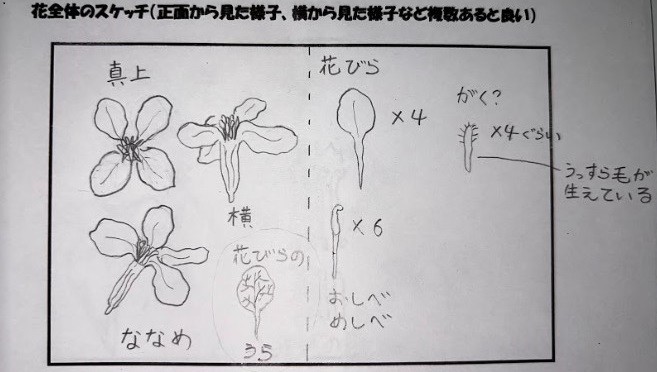 花全体のスケッチ(正面から見た様子、横から見た様子など複数あると良い)
真上
横
ななめ
花びらの
うら
花びら
×4
×6
おしべ
めしべ
がく?
×4ぐらい
うっすら毛が
生えている